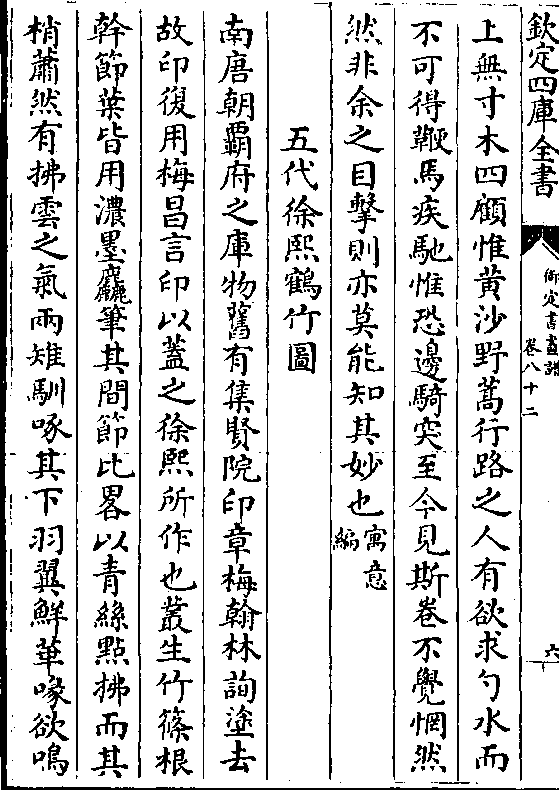 欽定四庫全書
御定書畫譜
卷八十二
六
上無寸木四顧惟黃沙野蒿行路之人有欲求勺水而
不可得鞭馬疾馳惟恐邊騎突至今見斯卷不覺惘然
然非余之目擊則亦莫能知其妙也寓意
編
五代徐熙鶴竹圖
南唐朝覇府之庫物舊有集賢院印章梅翰林詢塗去
故印復用梅昌言印以蓋之徐熙所作也叢生竹篠根
幹節葉皆用濃墨麤筆其間節比畧以青絲點拂而其
梢蕭然有拂雲之氣兩雉馴啄其下羽翼鮮華喙欲鳴